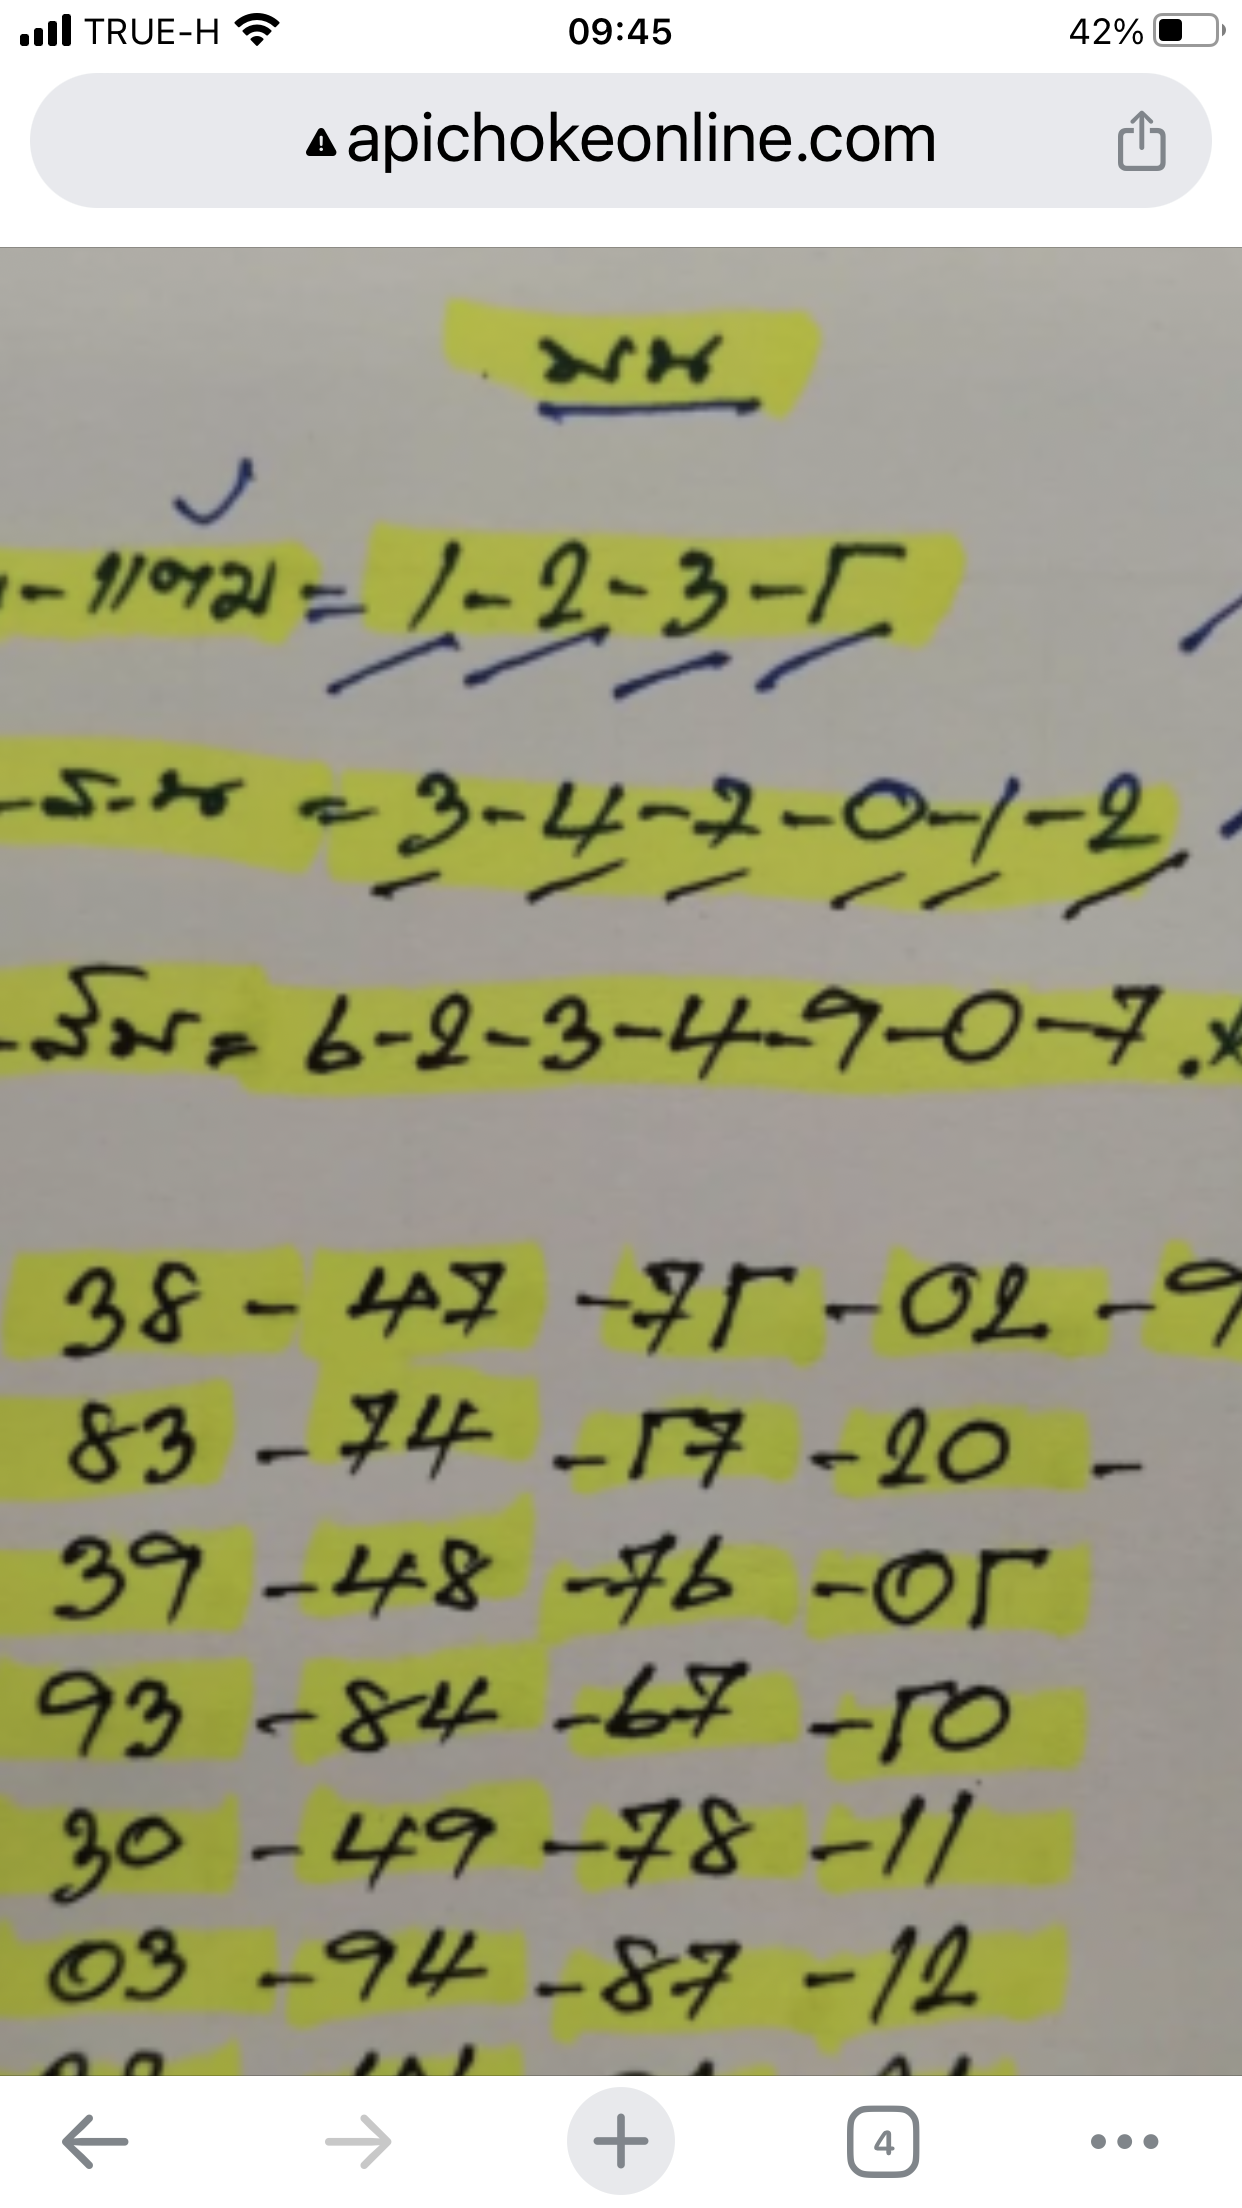 TRUE-H 09:45 42%
apichokeonline.com
มห
- แถม = 1-2-3-5
= 3-4-7-0-1-2
= 6-2-3-4-9-0-7.*
38 - 47 - 75 - 02 - 9
83 - 74 - 57 - 20 -
39 - 48 - 76 - 05
93 - 84 - 67 - 50
30 - 49 - 78 - 11
03 - 94 - 87 - 12
4